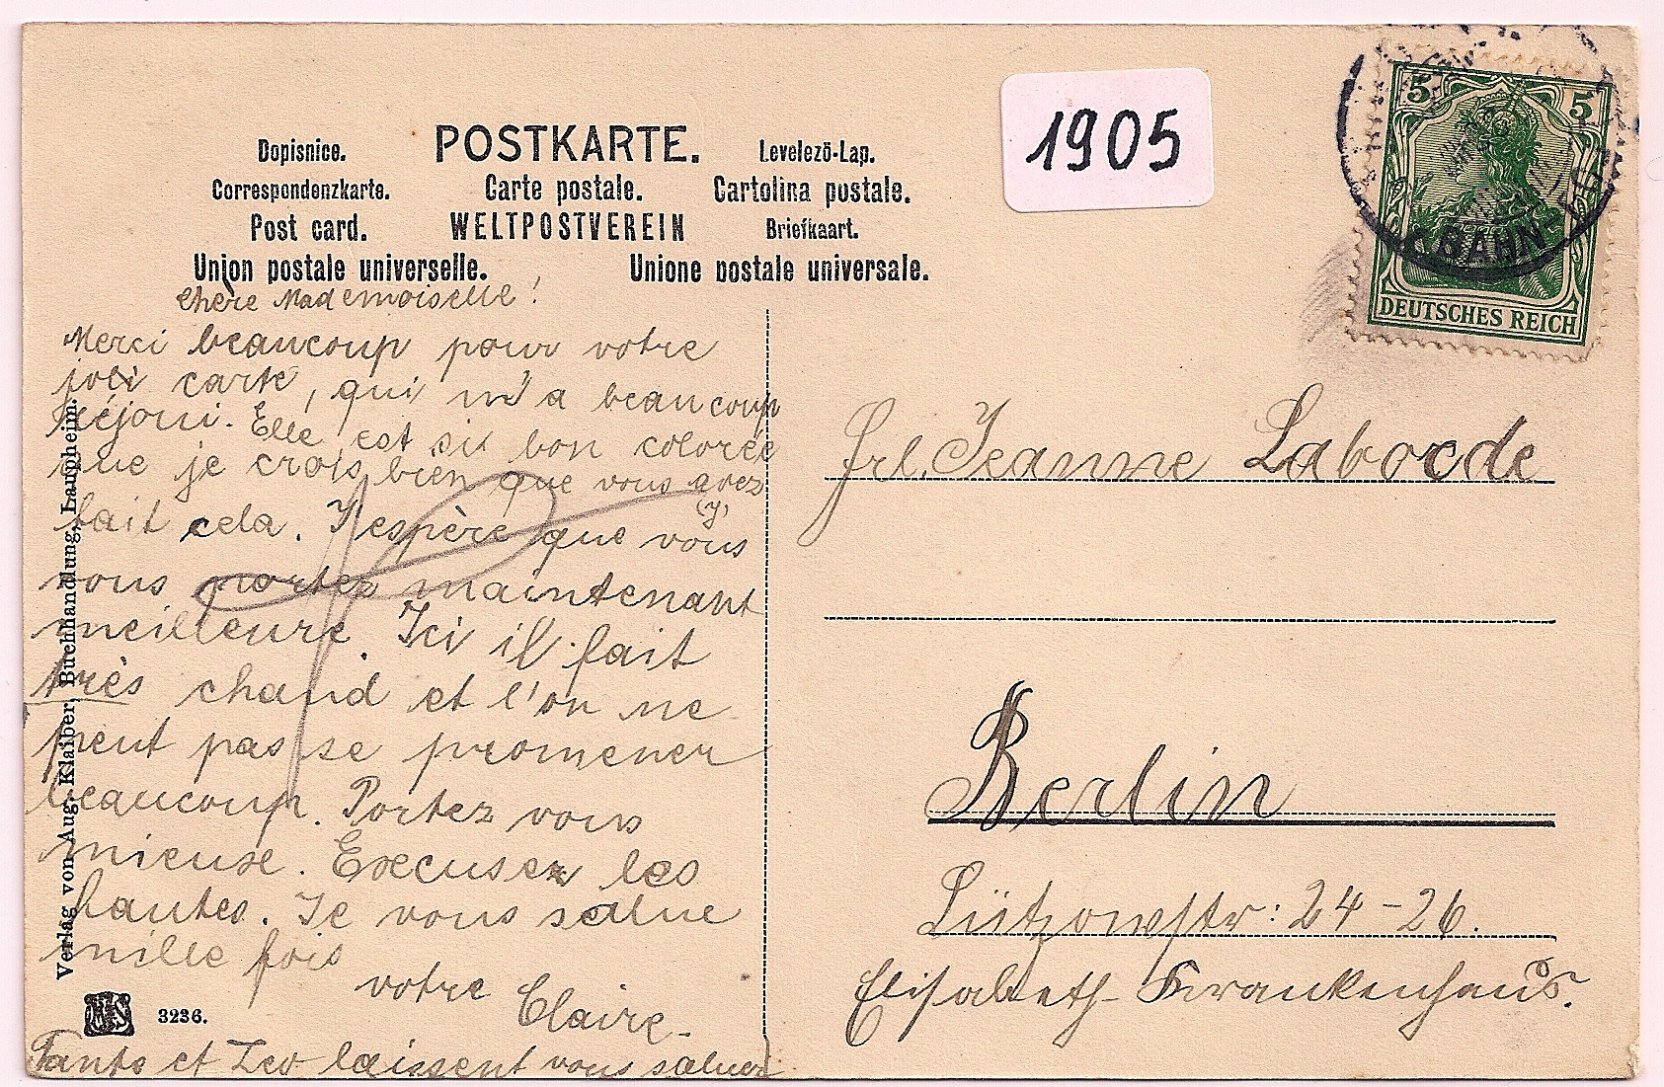 1905
5 5
BAHN
DEUTSCHES REICH
Dopisnice. POSTKARTE. Levelező-Lap.
Correspondenzkarte. Carte postale. Cartolina postale.
Post card. WELTPOSTVEREIN Briefkaart.
Union postale universelle. Unione postale universale.
Chère Mademoiselle!
Merci beaucoup pour votre
joli carte, qui m'a beaucoup
réjoui. Elle est si bon colorée
que je crois bien que vous avez
fait cela. J'espère que vous
(y)
vous portez maintenant
meilleure. Ici il fait
très chaud et l'on ne
peut pas se promener
beaucoup. Portez vous
mieuse. Excusez les
fautes. Je vous salue
mille fois
votre Claire.
Tante et Leo laissent vous saluer
Frl. Jeanne Laborde
Berlin
Lützowstr: 24-26.
Elisabeth-Krankenhaus.
Verlag von Aug. Klaiber, Buchhandlung, Laupheim.
3236.